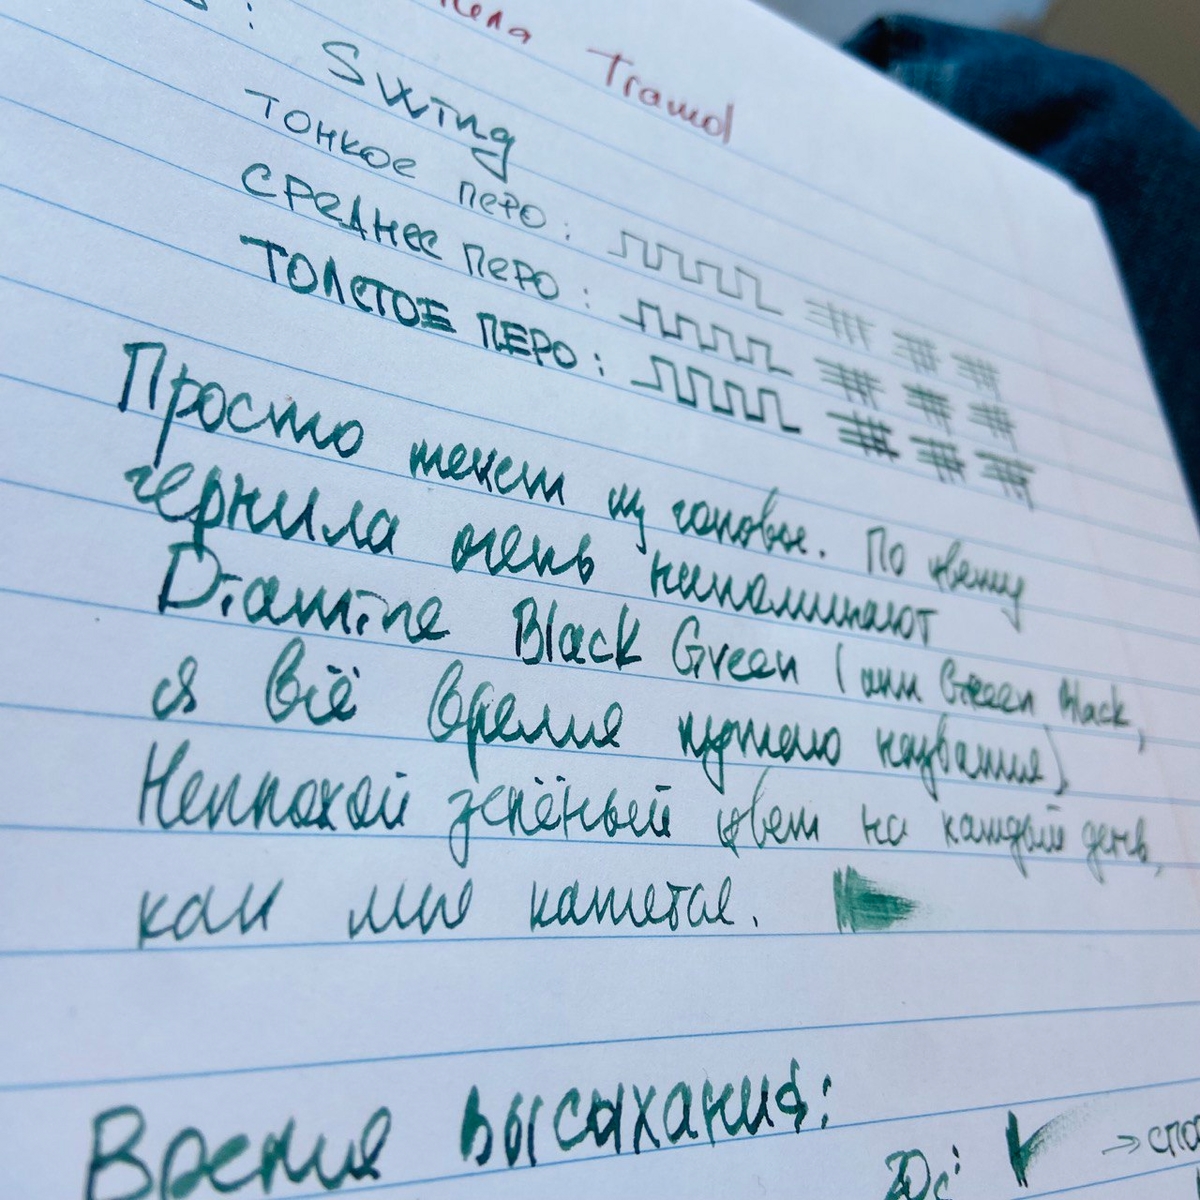 Trawol
Swing
тонкое перо:
среднее перо:
толстое перо:
Просто текст из головы. По цвету
чернила очень напоминают
Diamine Black Green (или Green Black,
я всё время путаю названия).
Неплохой зелёный цвет на каждый день,
как мне кажется.
Время высыхания:
20с: